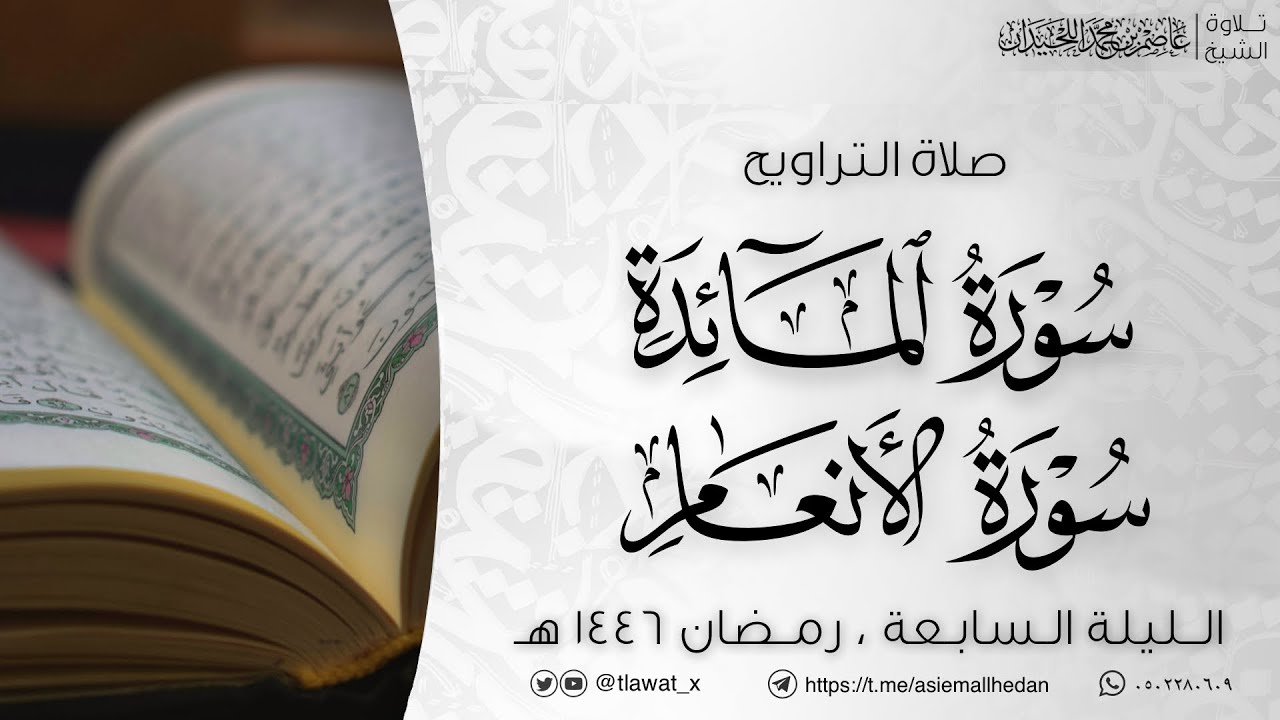 تلاوة الشيخ
عاصم بن محمد اللحيدان
صلاة التراويح
سُورَةُ ٱلْمَآئِدَةِ
سُورَةُ الأَنْعَامِ
الليلة السابعة ، رمضان ١٤٤٦ هـ
@tlawat_x
https://t.me/asiemallhedan
٠٥٠٢٢٨٠٦٠٩